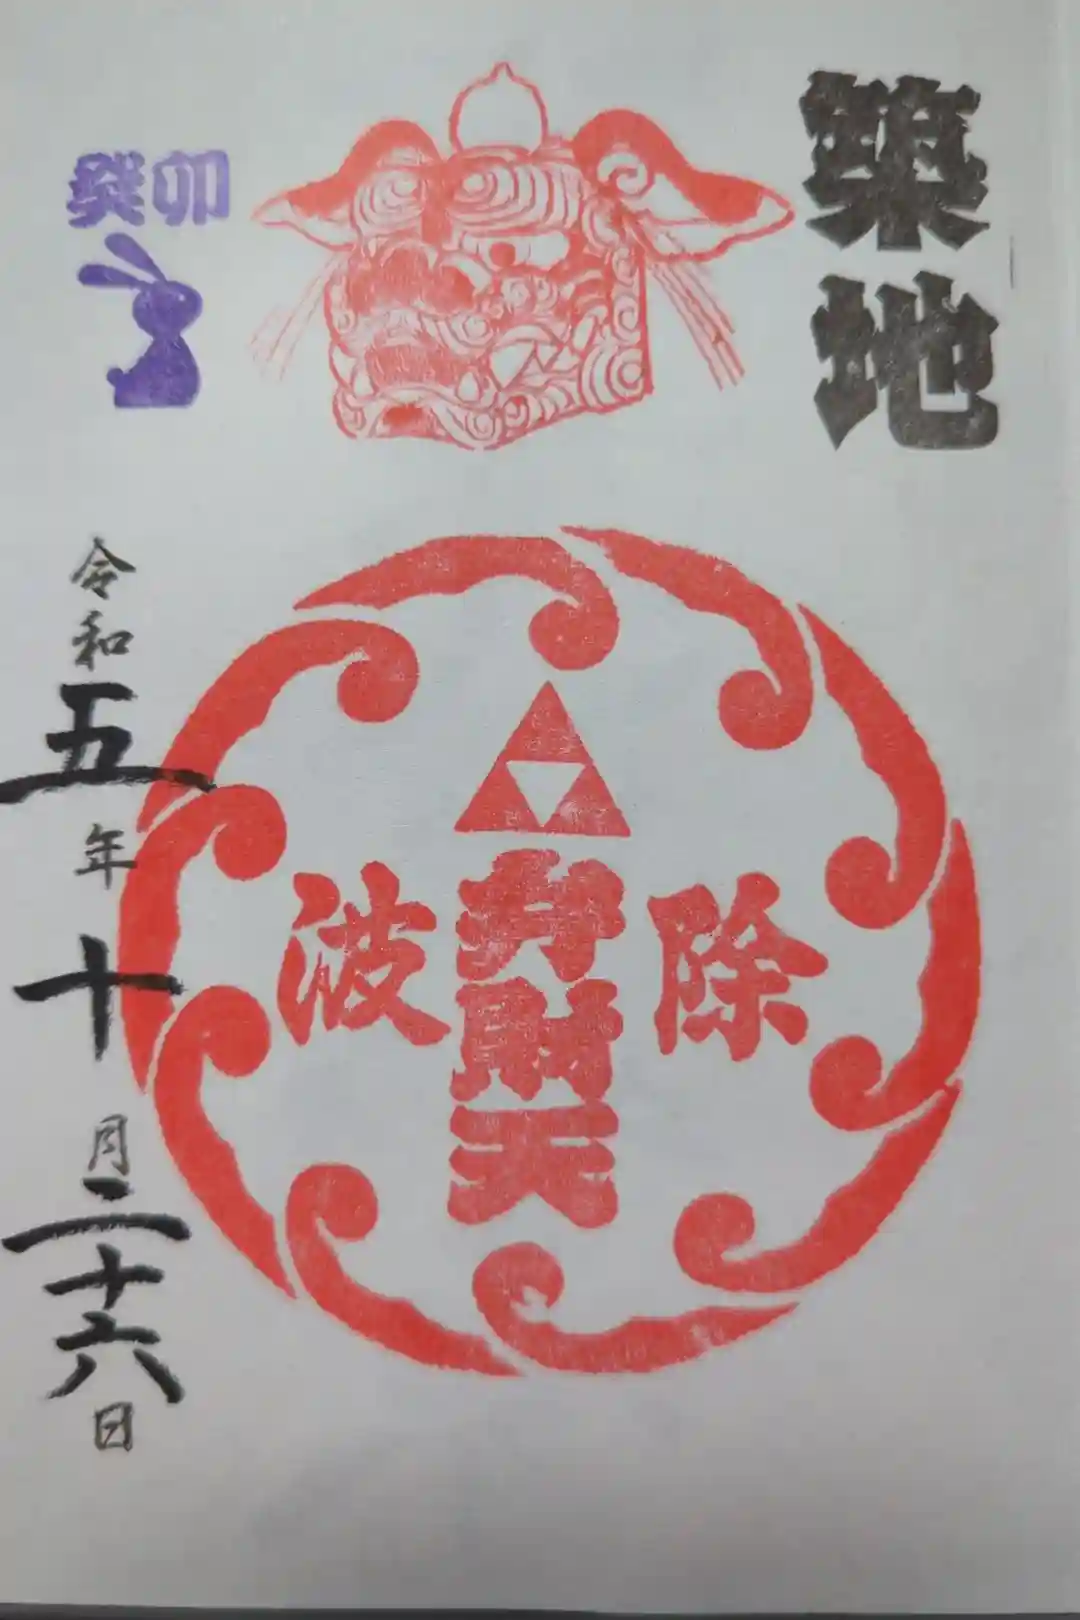 築地
癸卯
除
弁財天
波
令和五年十月二十六日